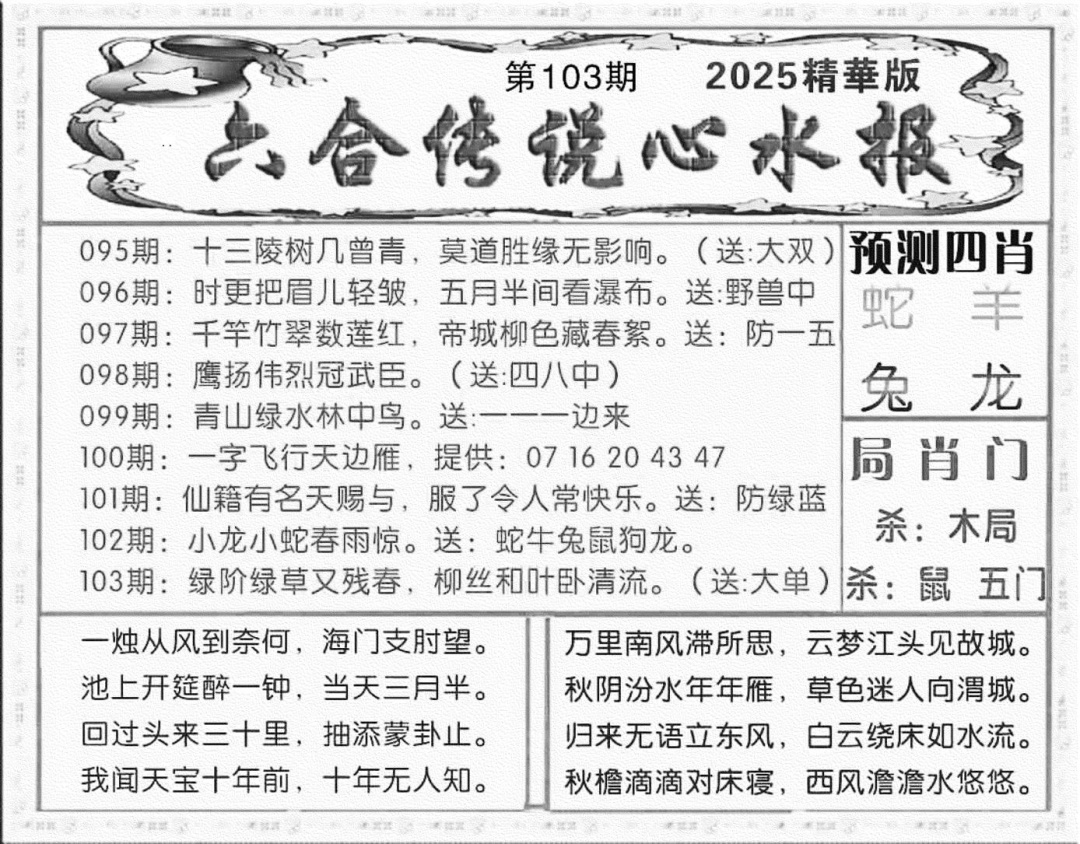 第103期 2025精華版
六合传说心水报
095期：十三陵树几曾青，莫道胜缘无影响。（送:大双）
096期：时更把眉儿轻皱，五月半间看瀑布。送:野兽中
097期：千竿竹翠数莲红，帝城柳色藏春絮。送：防一五
098期：鹰扬伟烈冠武臣。（送:四八中）
099期：青山绿水林中鸟。送:一一一边来
100期：一字飞行天边雁，提供：07 16 20 43 47
101期：仙籍有名天赐与，服了令人常快乐。送：防绿蓝
102期：小龙小蛇春雨惊。送：蛇牛兔鼠狗龙。
103期：绿阶绿草又残春，柳丝和叶卧清流。（送:大单）
预测四肖
蛇 羊
兔 龙
局肖门
杀：木局
杀：鼠 五门
一烛从风到奈何，海门支肘望。
池上开筵醉一钟，当天三月半。
回过头来三十里，抽添蒙卦止。
我闻天宝十年前，十年无人知。
万里南风滞所思，云梦江头见故城。
秋阴汾水年年雁，草色迷人向渭城。
归来无语立东风，白云绕床如水流。
秋檐滴滴对床寝，西风澹澹水悠悠。